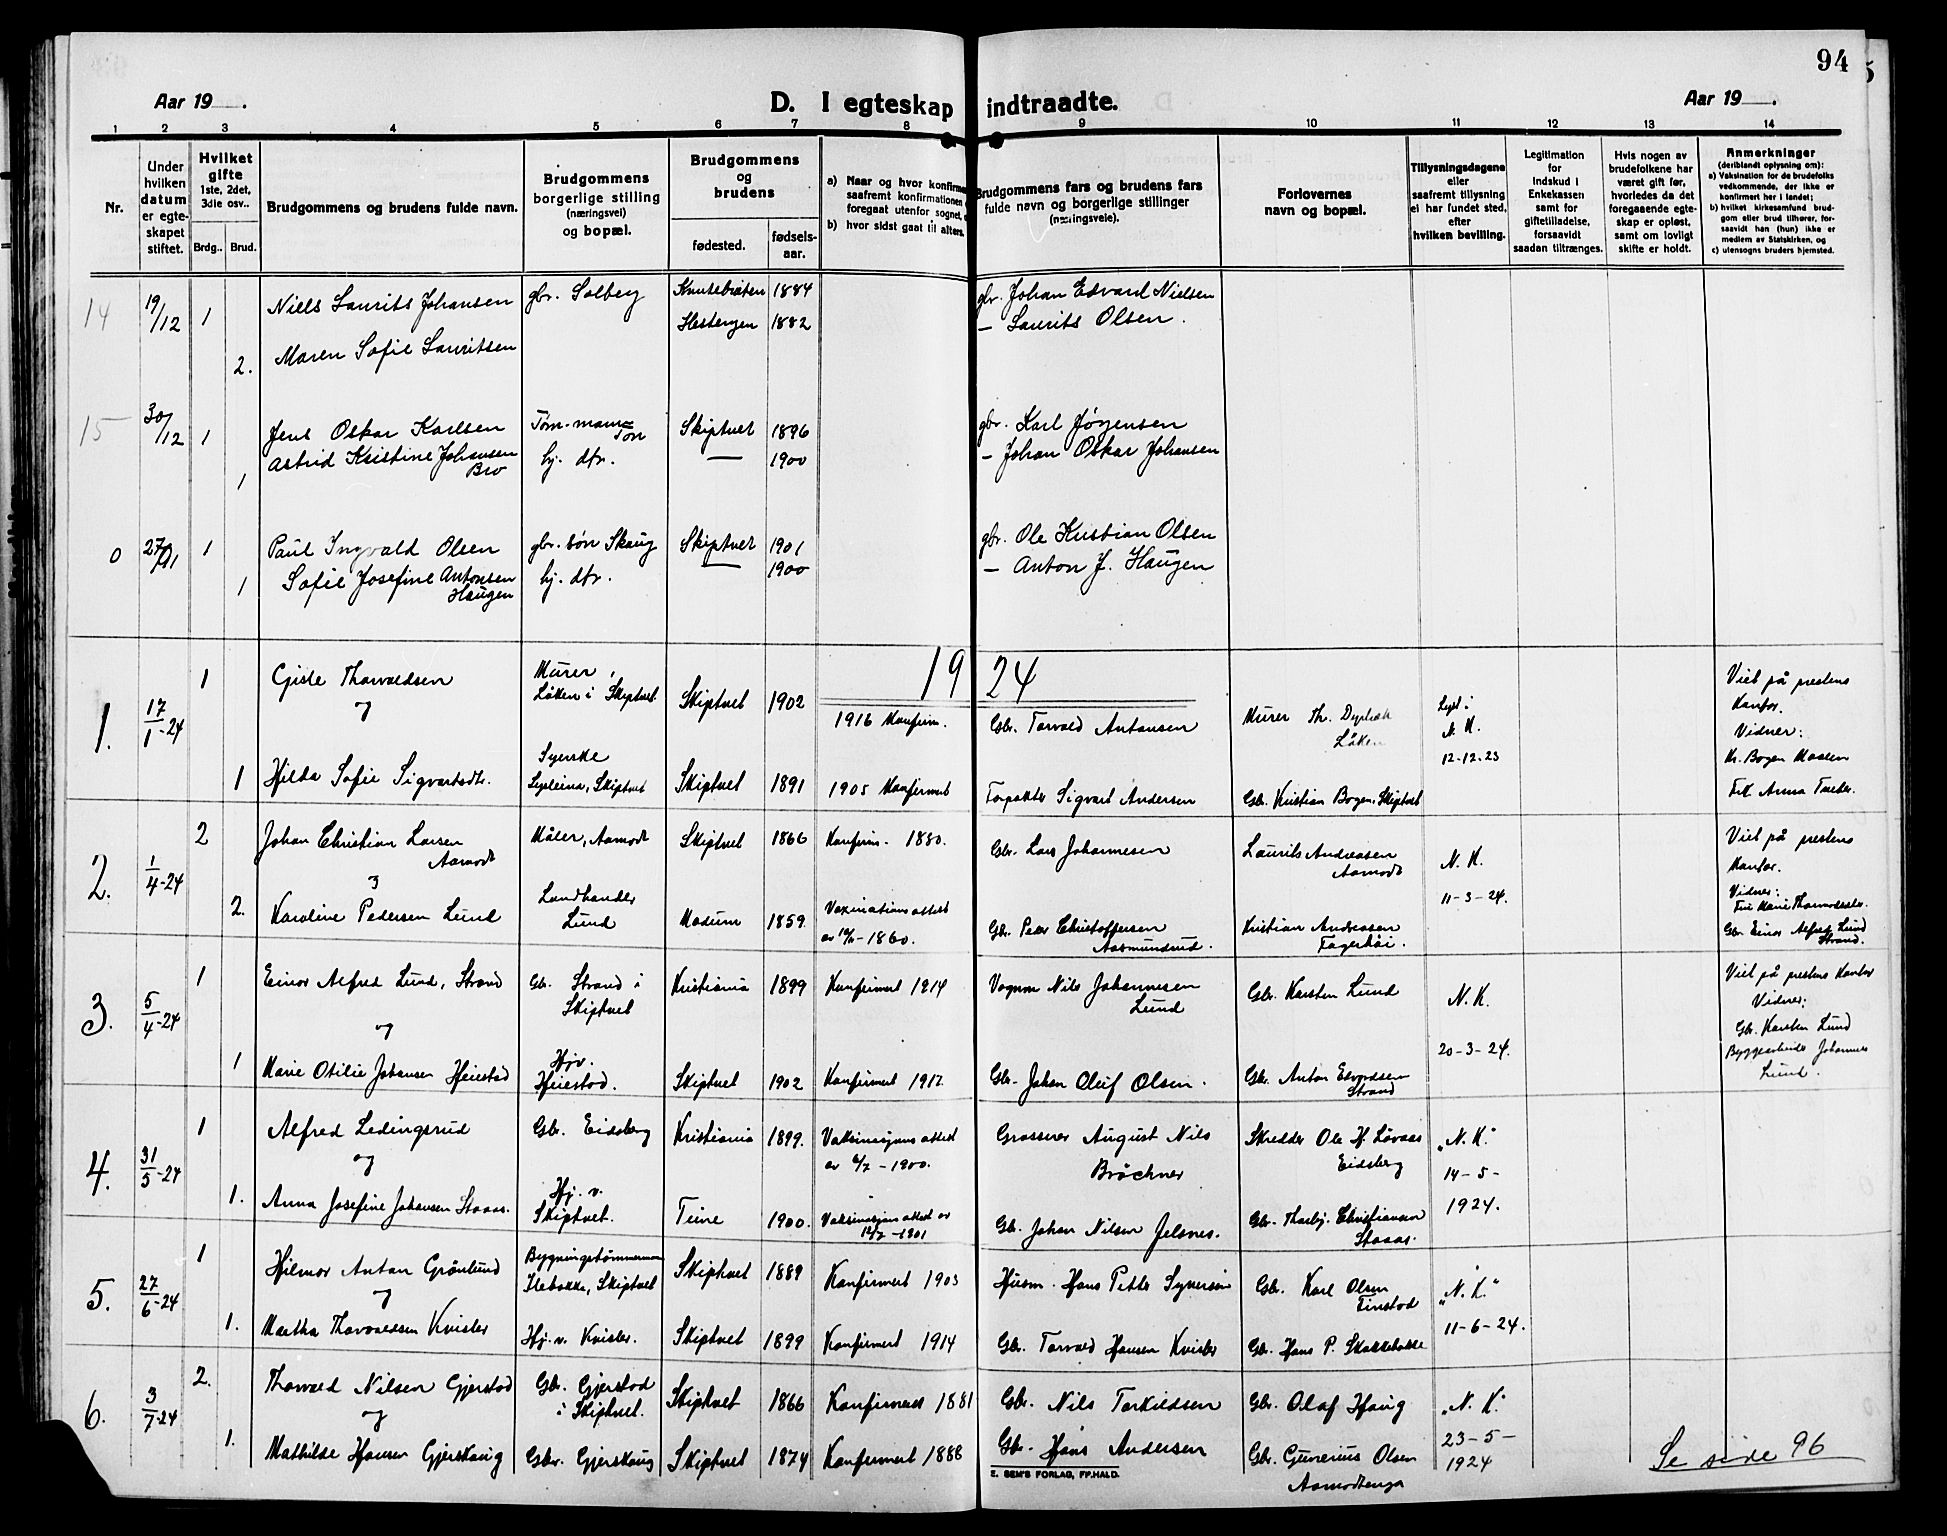 94
Aar 19 . D. I egteskap indtraadte. Aar 19 .
1 2 3 4 5 6 7 8 9 10 11 12 13 14
Nr.
Under hvilken datum er egteskapet stiftet.
Hvilket gifte 1ste, 2det, 3die osv..
Brdg.. Brud.
Brudgommens og brudens fulde navn.
Brudgommens borgerlige stilling (næringsvei) og bopæl.
Brudgommens og brudens
fødested. fødselsaar.
a) Naar og hvor konfirme
saafremt konfirmationen
foregaat utenfor sognet,
b) hvor sidst gaat til alters.
Brudgommens fars og brudens fars fulde navn og borgerlige stillinger (næringsveie).
Forlovernes navn og bopæl.
Tillysningsdagene eller saafremt tillysning ei har fundet sted, efter hvilken bevilling.
Legitimation for Indskud i Enkekassen samt for giftetilladelse, forsaavidt saadan tiltrænges.
Hvis nogen av brudefolkene har været gift før, hvorledes da det foregaaende egteskap er opløst, samt om lovligt skifte er holdt.
Anmerkninger
(deriblandt oplysning om):
a) Vaksination for de brudefolks vedkommende, der ikke er konfirmert her i landet;
b) hvilket kirkesamfund brudgom eller brud tilhører, forsaavidt han (hun) ikke er medlem av Statskirken, og
c) utensogns bruders hjemsted.
14 19/12 1 Niels Laurits Johansen gbr. Solberg Knutsbraten 1884 gbr. Johan Edvard Nielsen
2. Maren Sofie Lauritsen Hestengen 1882 — Laurits Olsen.
15 30/12 1 Jens Oskar Karlsen Tøm.mann Skiptvet 1896 gbr. Karl Jørgensen
1 Astrid Kristine Johansen Bro hj. dtr. — 1900 — Johan Oskar Johansen
0 1 Paul Ingvald Olsen gbr. søn Skaug Skiptvet 1901 gbr. Ole Kristian Olsen
1 Sofie Josefine Antonsen Haugen hj. dtr. — 1900 — Anton J. Haugen
1924
1. 17/1-24 1 Gisle Thorvaldsen Murer, Løken i Skiptvet Skiptvet 1902 1916 Konfirm. Gbr. Torvald Antonsen Murer Th. Løken Lyst i N. K. 12-12-23
og
1 Hilda Sofie Sigvartsdtr. Syerske Skiptvet Skiptvet 1891 1905 Konfirmert Sigvart Andersen Gbr. Kristian Bogen, Skiptvet
Viet på prestens Kontor. Vidner: Kr. Bogen Frk Anna
2. 1/4-24 2 Johan Christian Larsen Aamodt Måler, Aamodt Skiptvet 1866 Konfirm. 1880. Gbr. Lars Johannesen Laurits Andreasen Aamodt N. K. 11-3-24.
2. Karoline Pedersen Lund Landhandler Lund Modum 1859. Vaxinationsattest av 1860. Gbr. Peter Christoffersen Aasmundrud. Kristian Andreassen Fagerhøi.
Viet på prestens Kontor. Vidner: Gbr. Einar Alfred Lund Strand.
3. 5/4-24 1 Einar Alfred Lund, Strand Gb. Strand i Skiptvet Kristiania 1899 Konfirmert 1914 Nils Johannesen Lund Gbr. Karsten Lund N. K. 20-3-24.
og
1 Marie Otilie Johansen Heiestad Hjv. Heiestad. Skiptvet 1902 Konfirmert 1917 Gbr. Johan Oluf Olsen. Gbr. Anton Edvardsen Strand
Viet på prestens Kontor Vidner: Gbr. Karsten Lund Byggearbeider Johannes Lund.
4. 31/5-24 1 Alfred Ledingsrud Gbr. Eidsberg Kristiania 1899. Vaksinasjonsattest av 1900. Grosserer August Nils Bröchner Skredder Ole H. Løvaas Eidsberg „N. K." 14-5-1924.
og
1. Anna Josefine Johansen Staaas. Hj. v. Skiptvet. Tune 1900. Vaksinasjonsattest av 1901 Gb. Johan Nilsen Jelsnes. Gbr. Thorbj. Christiansen Staaas.
5. 27/6-24 1 Hilmar Anton Grönlund Bygningstömmermann Skiptvet Skiptvet 1889 Konfirmert 1903 Husm. Hans Petter Syversen Gbr. Karl Olsen Finstad „N. K." 11-6-24.
og
1. Martha Thorvaldsen Kvisler Hj. v. Kvisler. Skiptvet 1899 Konfirmert 1914 Gbr. Torvald Hansen Kvisler Gbr. Hans P.
6. 3/7-24 2. Thorvald Nilsen Gjerstad Gbr. Gjerstad i Skiptvet. Skiptvet 1866 Konfirmert 1881 Gbr. Nils Torkildsen Gbr. Olaf Haug „N. K." 23-5-1924
og
1. Mathilde Hansen Gjerskaug Gbr. Gjerskaug Skiptvet 1874 Konfirmert 1888 Gbr. Hans Andersen Gbr. Gunerius Olsen Aamodtenga
E. SEM'S FORLAG, FR.HALD.
Se side 96